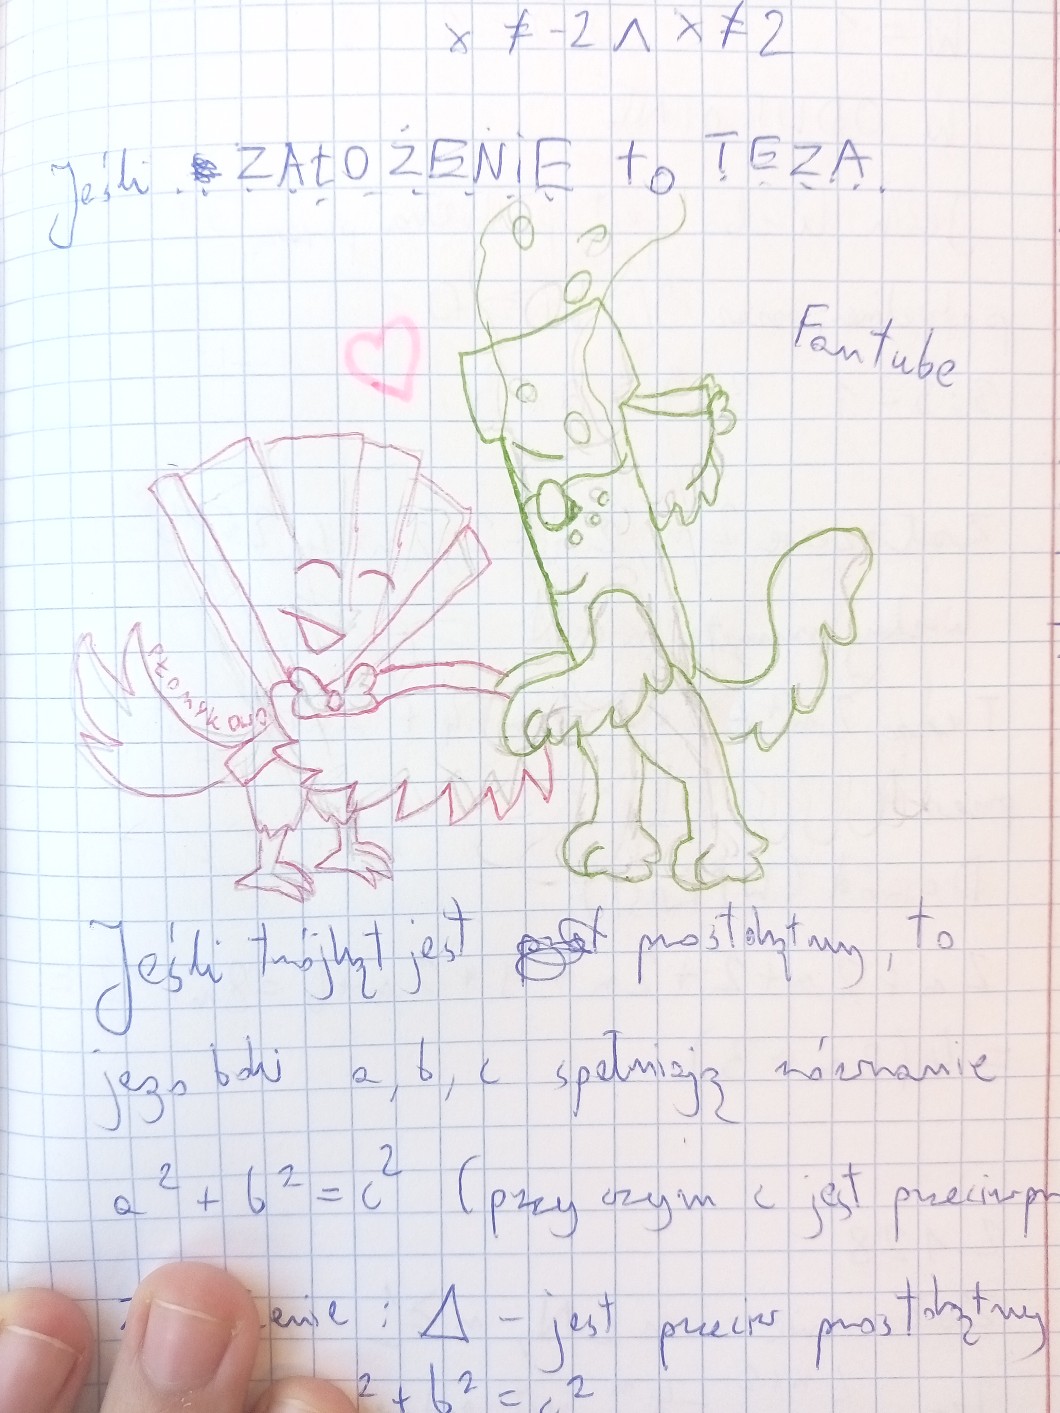 x ≠ -2 ∧ x ≠ 2
Jeśli ZAŁOŻENIE to TEZA.
Fantube
Jeśli trójkąt jest prostokątny, to
jego boki a, b, c spełniają równanie
a² + b² = c² (przy czym c jest przeciwpr
enie : Δ - jest przeciw prostokątny
² + b² = c²